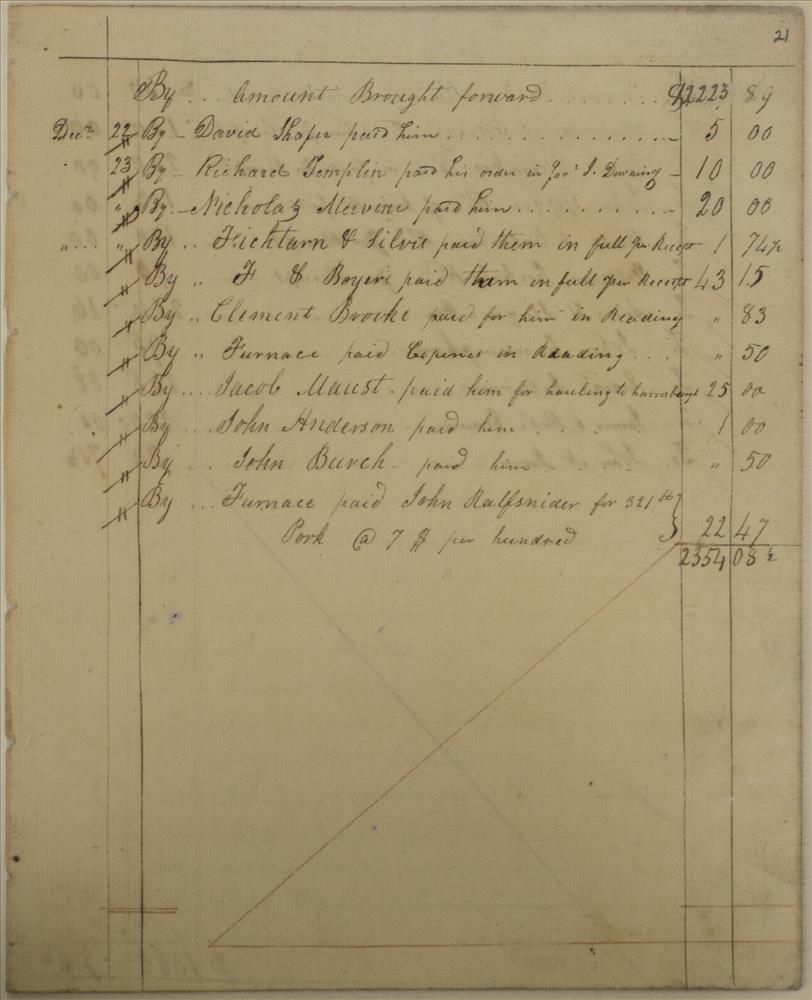 21
By .. Amount Brought forward ........ $2223 89
Decr 22 By - David Shafer paid him .............. 5 00
23 By - Richard Templin paid his order in favr J. Downing - 10 00
" By - Nicholas Mervine paid him ......... 20 00
" ... " By .. Fichturn & Silvis paid them in full per Recept 1 74½
By " F & Boyers paid them in full per Recept 43 15
By .. Clement Brooke paid for him in Reading " 83
By " Furnace paid Expences in Reading ... " 50
By .... Jacob Maust . paid him for hauling to 25 00
By ... John Anderson paid him . . . . 1 00
By .. John Burch . paid him . . . " 50
By ... Furnace paid John Ralfsnider for 321 lb }
Pork @ 7 $ per hundred } 22 47
2354 08½